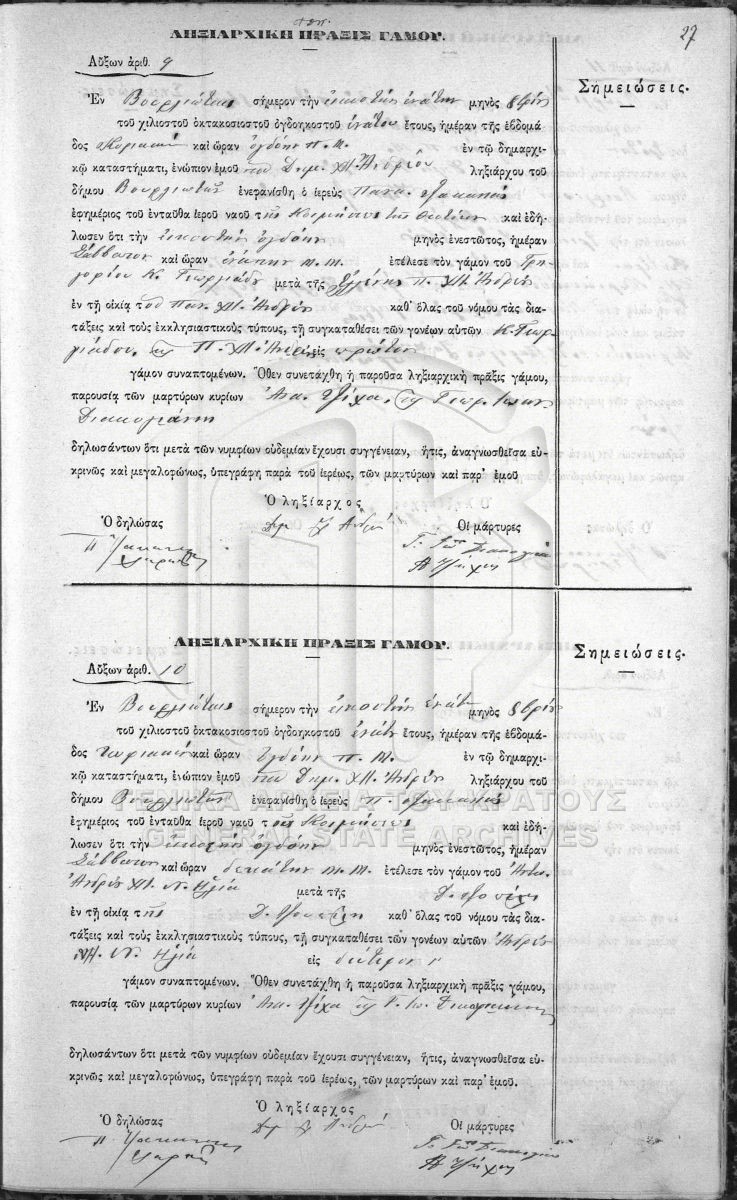 27
ΛΗΞΙΑΡΧΙΚΗ ΠΡΑΞΙΣ ΓΑΜΟΥ.
Αὔξων ἀριθ. 9
Σημειώσεις.
Ἐν Βουρλιώταις σήμερον τὴν εἰκοστὴν ἐνάτην μηνὸς 8βρίου
τοῦ χιλιοστοῦ ὀκτακοσιοστοῦ ὀγδοηκοστοῦ ἐνάτου ἔτους, ἡμέραν τῆς ἑβδομά
δος Κυριακὴν καὶ ὥραν ὀγδόην π. μ. ἐν τῷ δημαρχι-
κῷ καταστήματι, ἐνώπιον ἐμοῦ τοῦ Δημ. ΧΠ. Ἀνδρέου ληξιάρχου τοῦ
δήμου Βουρλιωτῶν ἐνεφανίσθη ὁ ἱερεὺς
ἐφημέριος τοῦ ἐνταῦθα ἱεροῦ ναοῦ τῆς Κοιμήσεως τῆς Θεοτόκου καὶ ἐδή-
λωσεν ὅτι τὴν εἰκοστὴν ὀγδόην μηνὸς ἐνεστῶτος, ἡμέραν
Σάββατον καὶ ὥραν ἐνάτην μ. μ. ἐτέλεσε τὸν γάμον τοῦ Γρη-
γορίου Κ. Γεωργιάδου μετὰ τῆς Ἑλένης Π. ΧΠ. Ἀνδρέου
ἐν τῇ οἰκίᾳ τοῦ Παν. ΧΠ. Ἀνδρέου καθ᾽ ὅλας τοῦ νόμου τὰς δια-
τάξεις καὶ τοὺς ἐκκλησιαστικοὺς τύπους, τῇ συγκαταθέσει τῶν γονέων αὐτῶν Κ. Γεωρ-
γιάδου, καὶ Π. ΧΠ. Ἀνδρέου εἰς πρῶτον
γάμον συναπτομένων. Ὅθεν συνετάχθη ἡ παροῦσα ληξιαρχικὴ πρᾶξις γάμου,
παρουσίᾳ τῶν μαρτύρων κυρίων Ἀνα. Τζίχα, καὶ Γεωρ. Ἰωάν.
Διακογιάννη
δηλωσάντων ὅτι μετὰ τῶν νυμφίων οὐδεμίαν ἔχουσι συγγένειαν, ἥτις, ἀναγνωσθεῖσα εὐ-
κρινῶς καὶ μεγαλοφώνως, ὑπεγράφη παρὰ τοῦ ἱερέως, τῶν μαρτύρων καὶ παρ᾽ ἐμοῦ
Ὁ ληξίαρχος
Ὁ δηλώσας
Οἱ μάρτυρες
ΛΗΞΙΑΡΧΙΚΗ ΠΡΑΞΙΣ ΓΑΜΟΥ.
Αὔξων ἀριθ. 10
Σημειώσεις.
Ἐν Βουρλιώταις σήμερον τὴν εἰκοστὴν ἐνάτην μηνὸς 8βρίου
τοῦ χιλιοστοῦ ὀκτακοσιοστοῦ ὀγδοηκοστοῦ ἐνάτου ἔτους, ἡμέραν τῆς ἑβδομά-
δος Κυριακὴν καὶ ὥραν ὀγδόην π. μ. ἐν τῷ δημαρχι-
κῷ καταστήματι, ἐνώπιον ἐμοῦ τοῦ Δημ. ΧΠ. Ἀνδρέου ληξιάρχου τοῦ
δήμου Βουρλιωτῶν ἐνεφανίσθη ὁ ἱερεὺς
ΓΕΝΙΚΑ ΑΡΧΕΙΑ ΤΟΥ ΚΡΑΤΟΥΣ
ἐφημέριος τοῦ ἐνταῦθα ἱεροῦ ναοῦ τῆς Κοιμήσεως καὶ ἐδή-
GENERAL STATE ARCHIVES
λωσεν ὅτι τὴν εἰκοστὴν ὀγδόην μηνὸς ἐνεστῶτος, ἡμέραν
Σάββατον καὶ ὥραν δεκάτην μ. μ. ἐτέλεσε τὸν γάμον τοῦ
μετὰ τῆς
ἐν τῇ οἰκίᾳ τῆς καθ᾽ ὅλας τοῦ νόμου τὰς δια-
τάξεις καὶ τοὺς ἐκκλησιαστικοὺς τύπους, τῇ συγκαταθέσει τῶν γονέων αὐτῶν Ἀνδρέου
εἰς δεύτερον
γάμον συναπτομένων. Ὅθεν συνετάχθη ἡ παροῦσα ληξιαρχικὴ πρᾶξις γάμου,
παρουσίᾳ τῶν μαρτύρων κυρίων Ἀνα. Τζίχα καὶ Γ. Ἰω. Διακογιάννη
δηλωσάντων ὅτι μετὰ τῶν νυμφίων οὐδεμίαν ἔχουσι συγγένειαν, ἥτις, ἀναγνωσθεῖσα εὐ-
κρινῶς καὶ μεγαλοφώνως, ὑπεγράφη παρὰ τοῦ ἱερέως, τῶν μαρτύρων καὶ παρ᾽ ἐμοῦ.
Ὁ ληξίαρχος
Ὁ δηλώσας
Οἱ μάρτυρες